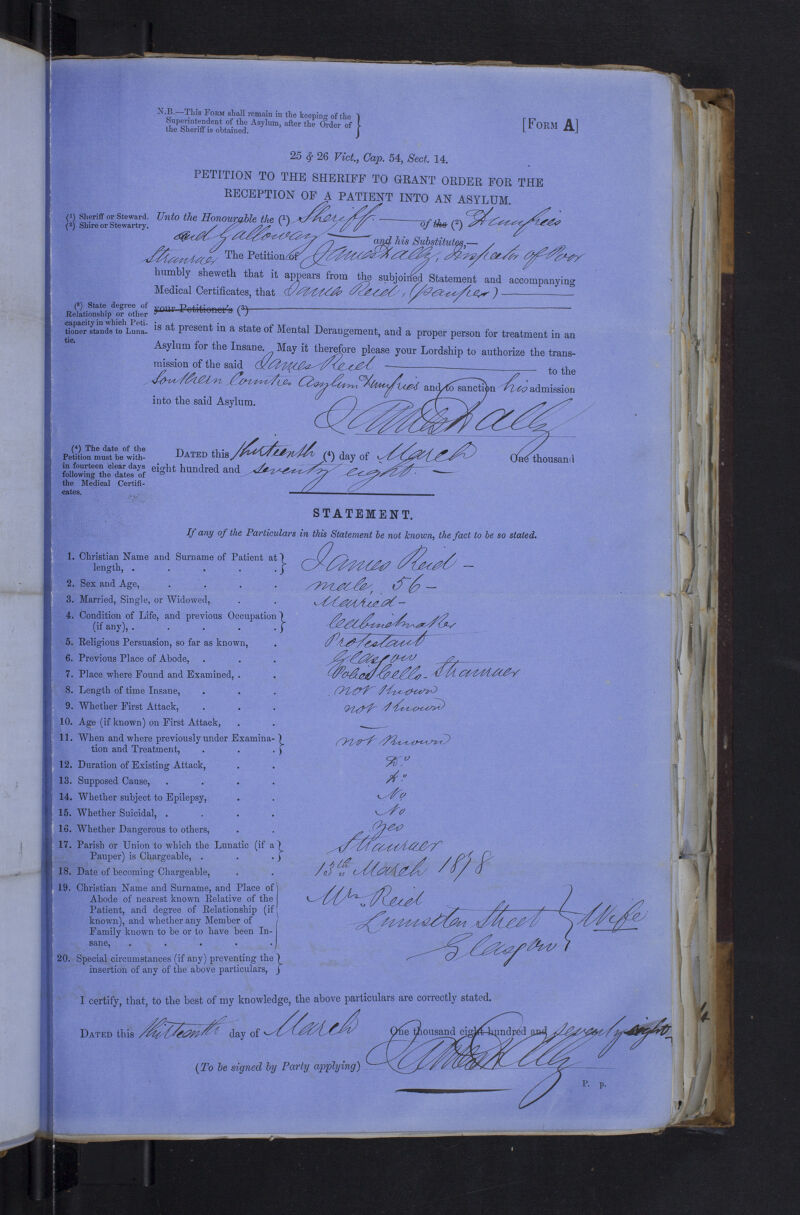 N.B.—This Form shall remain in the keeping of the
Superintendent of the Asylum, after the Order of
the Sheriff is obtained.
[Form A]
25 & 26 Vict., Cap. 54, Sect. 14.
PETITION TO THE SHERIFF TO GRANT ORDER FOR THE
RECEPTION OF A PATIENT INTO AN ASYLUM.
(1) Sheriff or Steward.
(2) Shire or Stewartry.
Unto the Honourable the (1) Sheriff of the (2) Dumfries
and Galloway and his Substitutes,—
Stranraer The Petition of James Dally, Inspector of Poor
humbly sheweth that it appears from the subjoined Statement and accompanying
Medical Certificates, that James Reid, (pauper)
(3) State degree of
Relationship or other
capacity in which Peti-
tioner stands to Luna-
tic.
your Petitioner's (3)
is at present in a state of Mental Derangement, and a proper person for treatment in an
Asylum for the Insane. May it therefore please your Lordship to authorize the trans-
mission of the said James Reid to the
Southern Counties Asylum Dumfries and to sanction his admission
into the said Asylum.
James Dally
(4) The date of the
Petition must be with-
in fourteen clear days
following the dates of
the Medical Certifi-
cates.
Dated this thirteenth (4) day of March One thousand
eight hundred and seventy eight.
STATEMENT.
If any of the Particulars in this Statement be not known, the fact to be so stated.
1. Christian Name and Surname of Patient at
length, . . . . . James Reid –
2. Sex and Age, . . . . male, 56 –
3. Married, Single, or Widowed, . . Married –
4. Condition of Life, and previous Occupation
(if any), . . . . Cabinetmaker
5. Religious Persuasion, so far as known, . Protestant
6. Previous Place of Abode, . . . Glasgow
7. Place where Found and Examined, . . Police Cells – Stranraer
8. Length of time Insane, . . . not known
9. Whether First Attack, . . . not known
10. Age (if known) on First Attack, . . —
11. When and where previously under Examina-
tion and Treatment, . . . not known
12. Duration of Existing Attack, . . Do
13. Supposed Cause, . . . . Do
14. Whether subject to Epilepsy, . . No
15. Whether Suicidal, . . . . No
16. Whether Dangerous to others, . . Yes
17. Parish or Union to which the Lunatic (if a
Pauper) is Chargeable, . . . Stranraer
18. Date of becoming Chargeable, . . 13th March 1878
19. Christian Name and Surname, and Place of
Abode of nearest known Relative of the
Patient, and degree of Relationship (if
known), and whether any Member of
Family known to be or to have been In-
sane, . . . . .
Mrs Reid
Lumsden Street
Glasgow
Wife
20. Special circumstances (if any) preventing the
insertion of any of the above particulars,
I certify, that, to the best of my knowledge, the above particulars are correctly stated.
Dated this thirteenth day of March One thousand eight hundred and seventy eight
(To be signed by Party applying) James Dally
P. p.